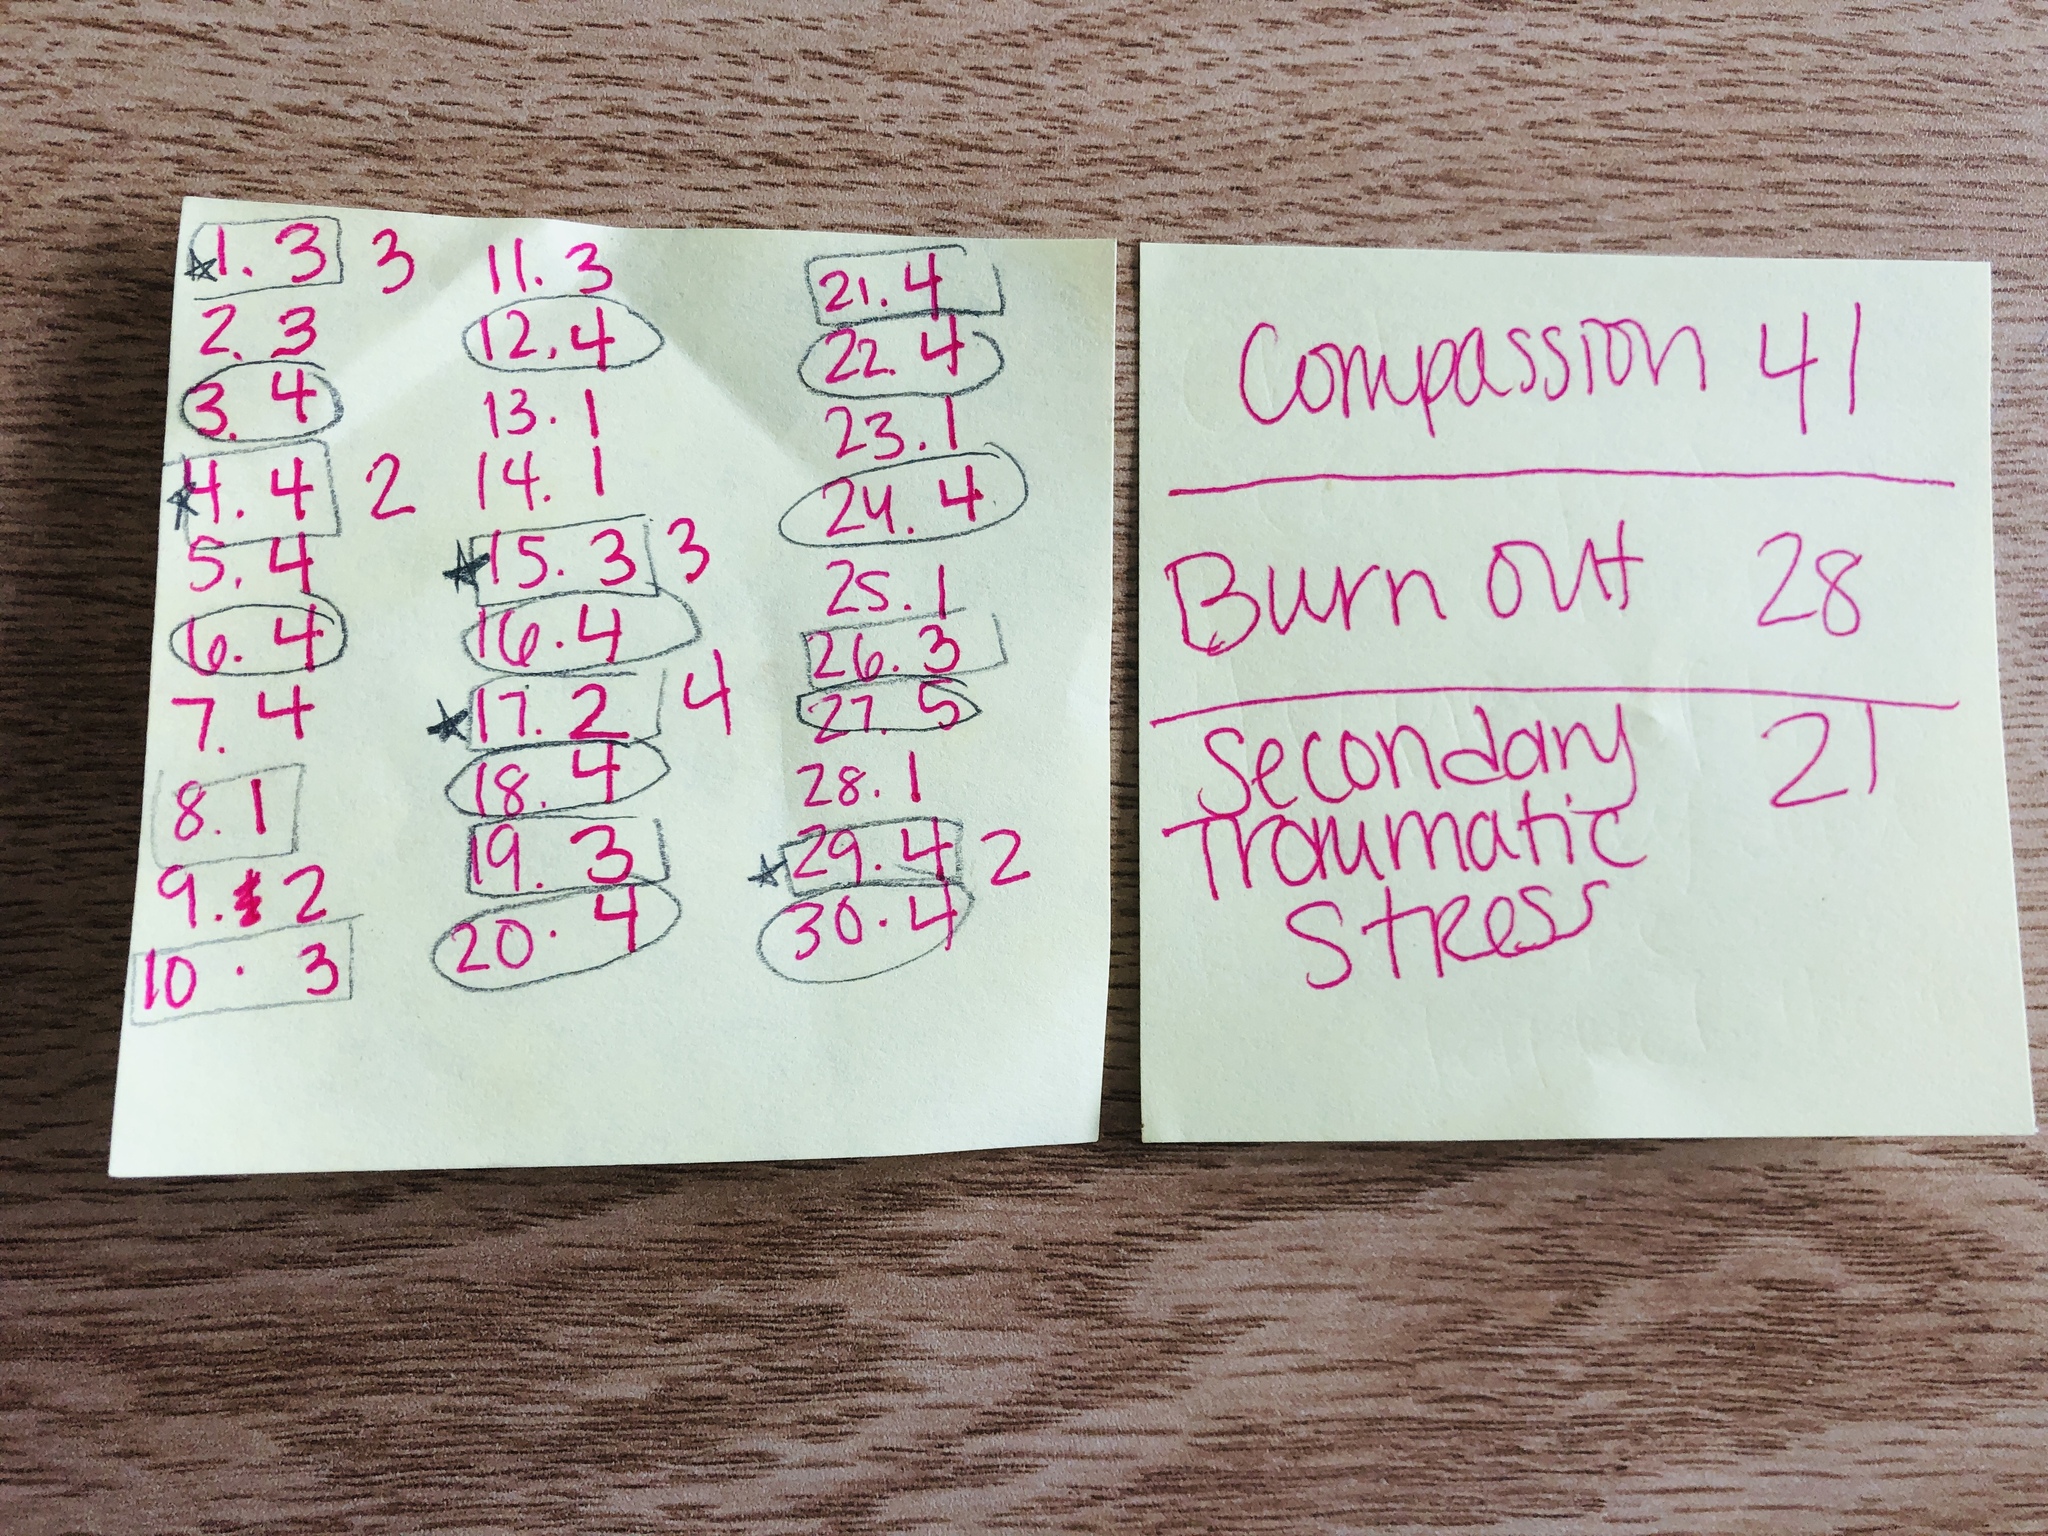 1. 3 3
2. 3
3. 4
4. 4 2
5. 4
6. 4
7. 4
8. 1
9. 2
10. 3
11. 3
12. 4
13. 1
14. 1
15. 3 3
16. 4
17. 2 4
18. 4
19. 3
20. 4
21. 4
22. 4
23. 1
24. 4
25. 1
26. 3
27. 5
28. 1
29. 4 2
30. 4
Compassion 41
Burn out 28
Secondary 21
Traumatic
Stress